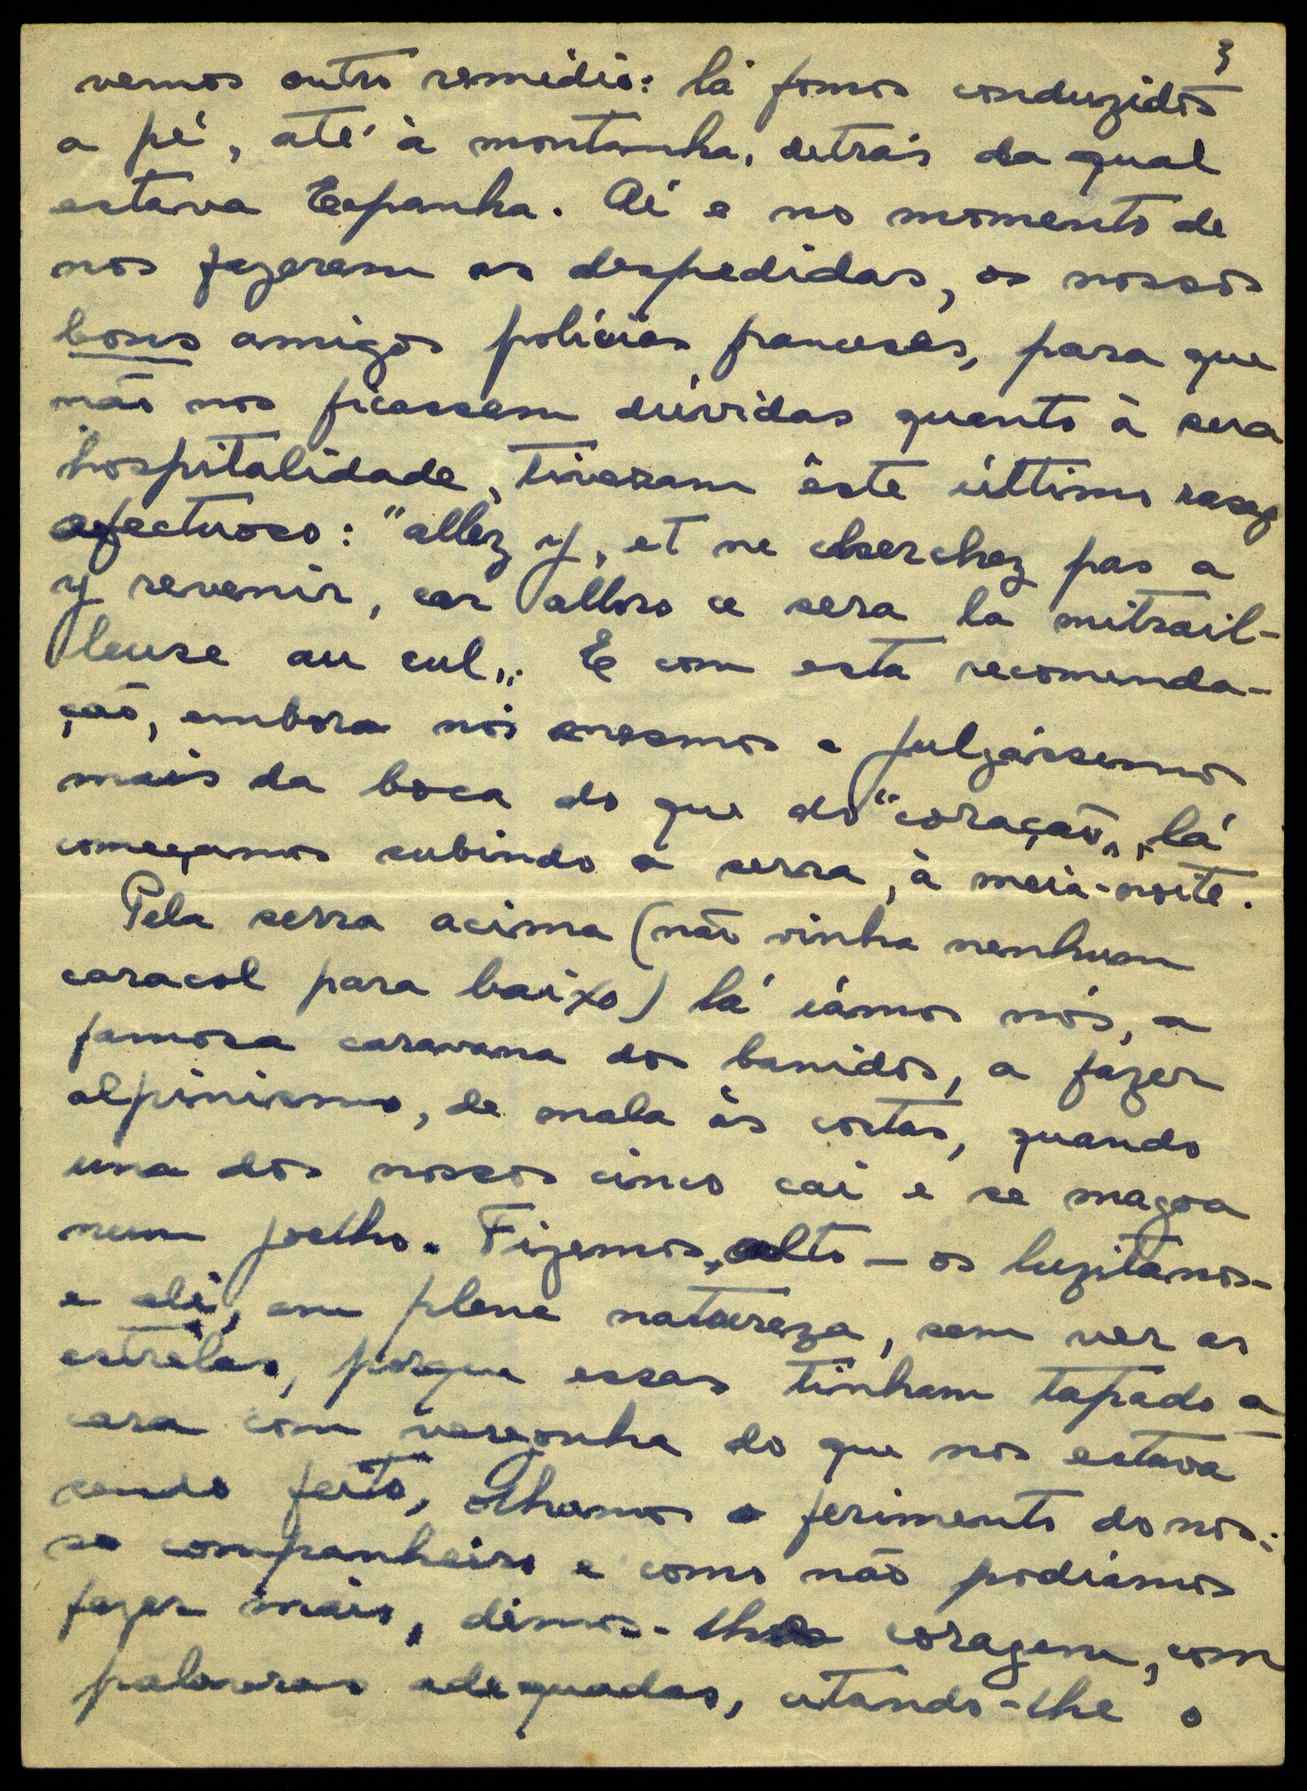 3
vemos outro remédio: lá fomos conduzidos
a pé, até à montanha, detrás da qual
estava Espanha. Aí e no momento de
nos fazerem as despedidas, os nossos
bons amigos polícias franceses, para que
não nos ficassem dúvidas quanto à sua
hospitalidade, tiveram êste último rasgo
afectuoso: "allez y, et ne cherchez pas a
y revenir, car allors ce sera la mitrail-
leuse au cul„. E com esta recomenda-
ção, embora nós mesmos a julgássemos
mais da boca do que do "coração„, lá
começamos subindo a serra, à meia-noite.
Pela serra acima (não vinha nenhum
caracol para baixo) lá iámos nós, a
famosa caravana dos banidos, a fazer
alpinismo, de mala às costas, quando
um dos nossos cinco cai e se magoa
num joelho. Fizemos, alto – os luzitanos –
e ali, em plena natureza, sem ver as
estrêlas, porque essas tinham tapado a
cara com vergonha do que nos estava
sendo feito, olhamos o ferimento do nos-
so companheiro e como não podiámos
fazer mais, démos-lhe coragem, com
palavras adequadas, citando-lhe o